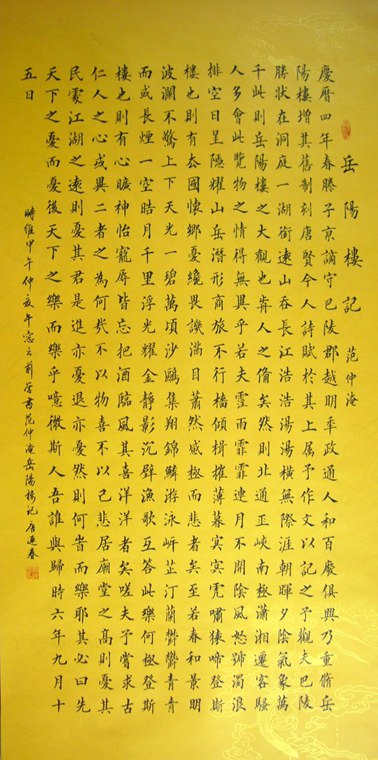 岳陽樓記 范仲淹
慶曆四年春滕子京謫守巴陵郡越明年政通人和百廢俱興乃重脩岳
陽樓增其舊制刻唐賢今人詩賦於其上属予作文以記之予觀夫巴陵
勝狀在洞庭一湖銜遠山吞長江浩浩湯湯橫無際涯朝暉夕陰氣象萬
千此則岳陽樓之大觀也歬人之俻矣然則北通巫峽南極瀟湘遷客騷
人多會此覽物之情得無異乎若夫霪雨霏霏連月不開陰風怒號濁浪
排空日星隱耀山岳潛形商旅不行檣傾楫摧薄暮冥冥虎嘯猿啼登斯
樓也則有去國懷鄉憂讒畏譏滿目蕭然感極而悲者矣至若春和景明
波瀾不驚上下天光一碧萬頃沙鷗集翔錦鱗游泳岸芷汀蘭鬱鬱青青
而或長煙一空皓月千里浮光耀金靜影沉璧漁歌互答此樂何極登斯
樓也則有心曠神怡寵辱皆忘把酒臨風其喜洋洋者矣嗟夫予嘗求古
仁人之心或異二者之為何哉不以物喜不以己悲居廟堂之高則憂其
民處江湖之遠則憂其君是進亦憂退亦憂然則何旹而樂耶其必曰先
天下之憂而憂後天下之樂而樂乎噫微斯人吾誰與歸時六年九月十
五日
時維甲午仲亥午窗之前學書范仲淹岳陽樓記